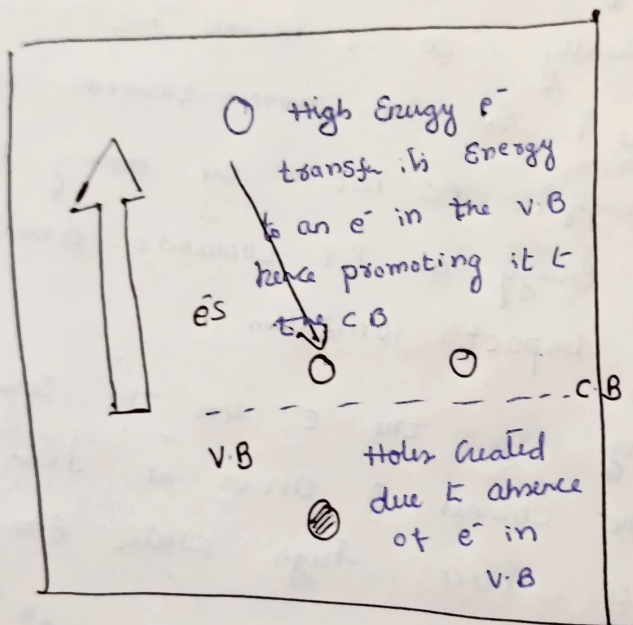 High Energy e⁻
transfer its Energy
to an e⁻ in the V.B
hence promoting it to
the C B
e⁻s
C.B
V.B
Holes Created
due to absence
of e⁻ in
V.B